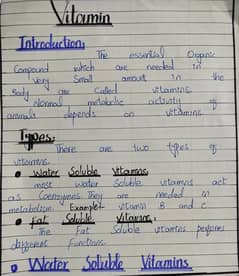 Vitamin
Introduction.
The essential Organic
Compound which are needed in
very Small amount in the
Body are Called vitamins.
Normal metabolic activity of
animals depends on vitamins.
Types.
There are two types of
vitamins.
• Water Soluble Vitamins
most water Soluble vitamins act
as Coenzymes They are needed in
metabolism. Example vitamin B and C
• Fat Soluble Vitamins.
The Fat Soluble vitamins performs
different Functions.
• Water Soluble Vitamins